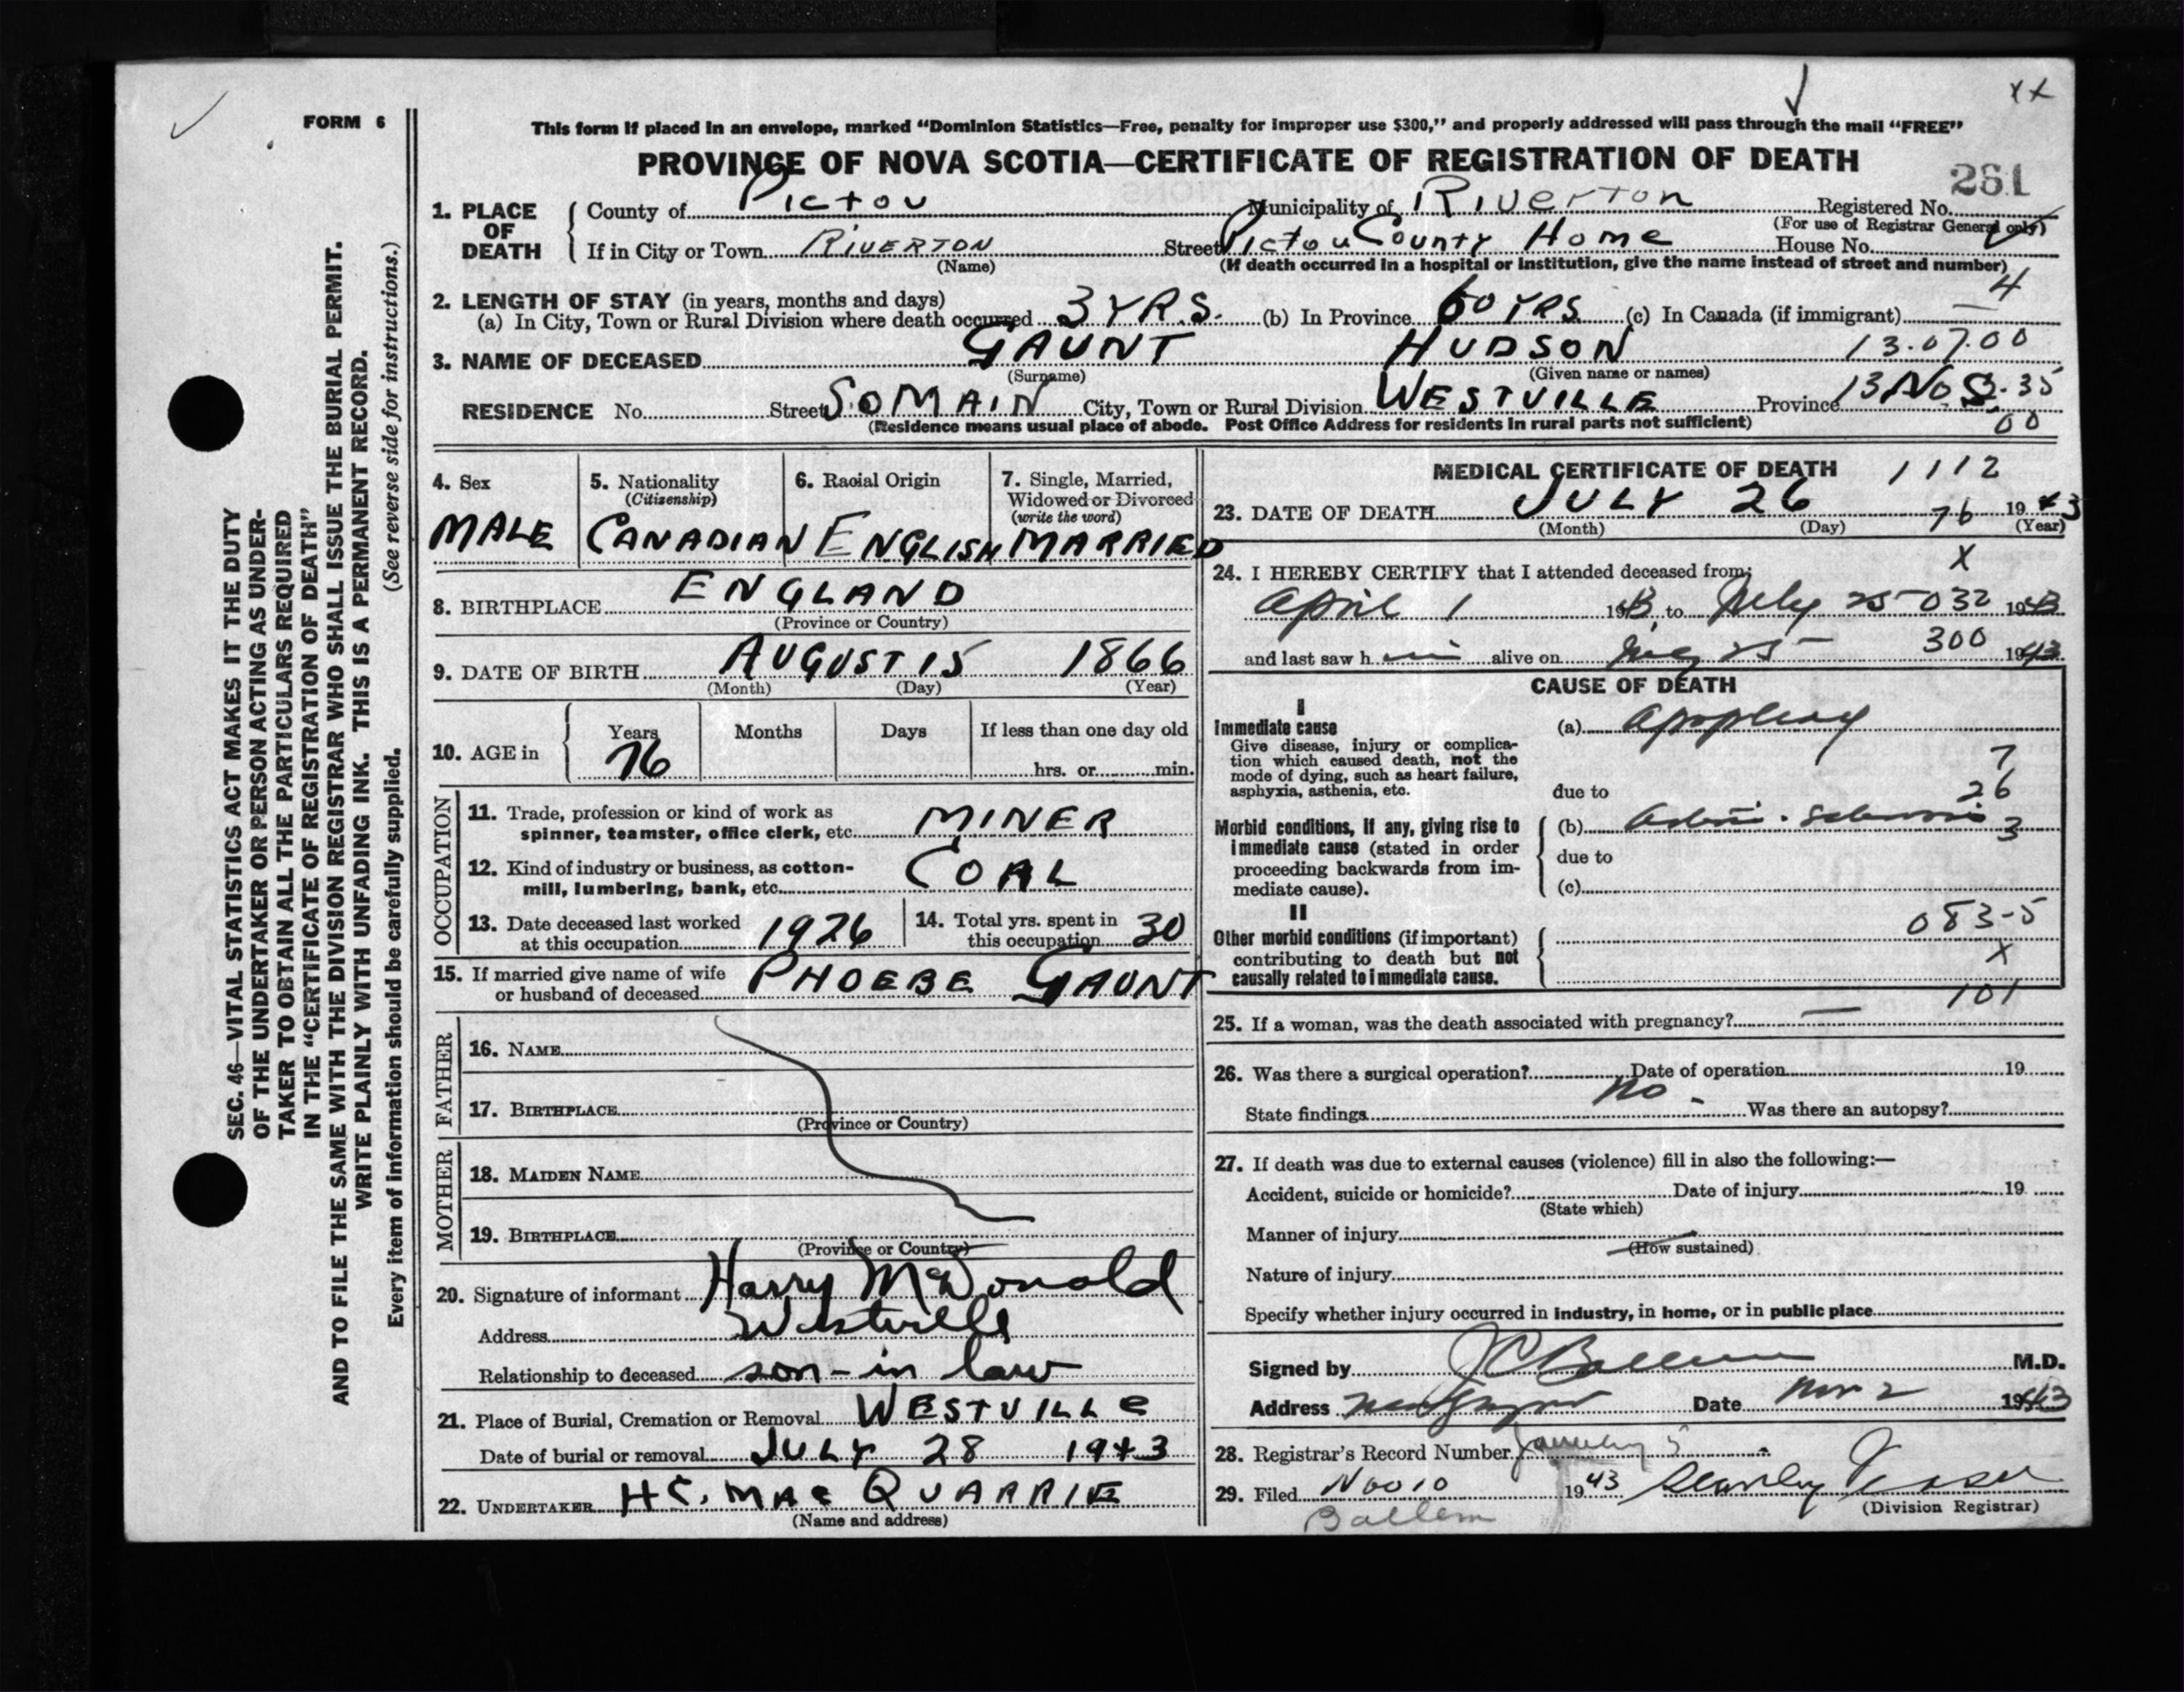 FORM 6
This form if placed in an envelope, marked "Dominion Statistics—Free, penalty for improper use $300," and properly addressed will pass through the mail "FREE"
PROVINCE OF NOVA SCOTIA—CERTIFICATE OF REGISTRATION OF DEATH
XX
261
SEC. 46—VITAL STATISTICS ACT MAKES IT THE DUTY
OF THE UNDERTAKER OR PERSON ACTING AS UNDER-
TAKER TO OBTAIN ALL THE PARTICULARS REQUIRED
IN THE "CERTIFICATE OF REGISTRATION OF DEATH"
AND TO FILE THE SAME WITH THE DIVISION REGISTRAR WHO SHALL ISSUE THE BURIAL PERMIT.
WRITE PLAINLY WITH UNFADING INK. THIS IS A PERMANENT RECORD.
Every item of information should be carefully supplied. (See reverse side for instructions.)
1. PLACE OF DEATH
County of Pictou Municipality of Riverton Registered No.
(For use of Registrar General only)
If in City or Town RIVERTON Street Pictou County Home House No.
(Name) (If death occurred in a hospital or institution, give the name instead of street and number)
4
2. LENGTH OF STAY (in years, months and days)
(a) In City, Town or Rural Division where death occurred 3 YRS. (b) In Province 60 YRS (c) In Canada (if immigrant) —
3. NAME OF DECEASED GAUNT HUDSON 13.07.00
(Surname) (Given name or names)
RESIDENCE No. Street SO MAIN City, Town or Rural Division WESTVILLE Province 13 No S. 35
(Residence means usual place of abode. Post Office Address for residents in rural parts not sufficient) 00
4. Sex
MALE
5. Nationality
(Citizenship)
CANADIAN
6. Racial Origin
ENGLISH
7. Single, Married,
Widowed or Divorced
(write the word)
MARRIED
8. BIRTHPLACE ENGLAND
(Province or Country)
9. DATE OF BIRTH AUGUST 15 1866
(Month) (Day) (Year)
10. AGE in Years Months Days If less than one day old
76 hrs. or min.
OCCUPATION
11. Trade, profession or kind of work as
spinner, teamster, office clerk, etc. MINER
12. Kind of industry or business, as cotton-
mill, lumbering, bank, etc. COAL
13. Date deceased last worked
at this occupation 1926
14. Total yrs. spent in
this occupation 30
15. If married give name of wife
or husband of deceased PHOEBE GAUNT
FATHER
16. NAME
17. BIRTHPLACE
(Province or Country)
MOTHER
18. MAIDEN NAME
19. BIRTHPLACE
(Province or Country)
20. Signature of informant Harry McDonald
Address Westville
Relationship to deceased son-in law
21. Place of Burial, Cremation or Removal WESTVILLE
Date of burial or removal JULY 28 1943
22. UNDERTAKER H C. MAC QUARRIE
(Name and address)
MEDICAL CERTIFICATE OF DEATH 1112
23. DATE OF DEATH JULY 26 76 1943
(Month) (Day) (Year)
X
24. I HEREBY CERTIFY that I attended deceased from:
April 1 1943, to July 25 032 1943
and last saw h im alive on July 25 300 1943
CAUSE OF DEATH
I
Immediate cause (a) apoplexy
Give disease, injury or complica-
tion which caused death, not the
mode of dying, such as heart failure,
asphyxia, asthenia, etc. due to
7
26
3
Morbid conditions, if any, giving rise to (b)
immediate cause (stated in order due to
proceeding backwards from im-
mediate cause). (c)
II
Other morbid conditions (if important) 083-5
contributing to death but not X
causally related to immediate cause.
101
25. If a woman, was the death associated with pregnancy? —
26. Was there a surgical operation? Date of operation 19
no
State findings Was there an autopsy?
27. If death was due to external causes (violence) fill in also the following:—
Accident, suicide or homicide? Date of injury 19
(State which)
Manner of injury
(How sustained)
Nature of injury
Specify whether injury occurred in industry, in home, or in public place
Signed by J C Ballem M.D.
Address Date Nov 2 1943
28. Registrar's Record Number
29. Filed Nov 10 1943 Stanley Fraser
(Division Registrar)
Ballem